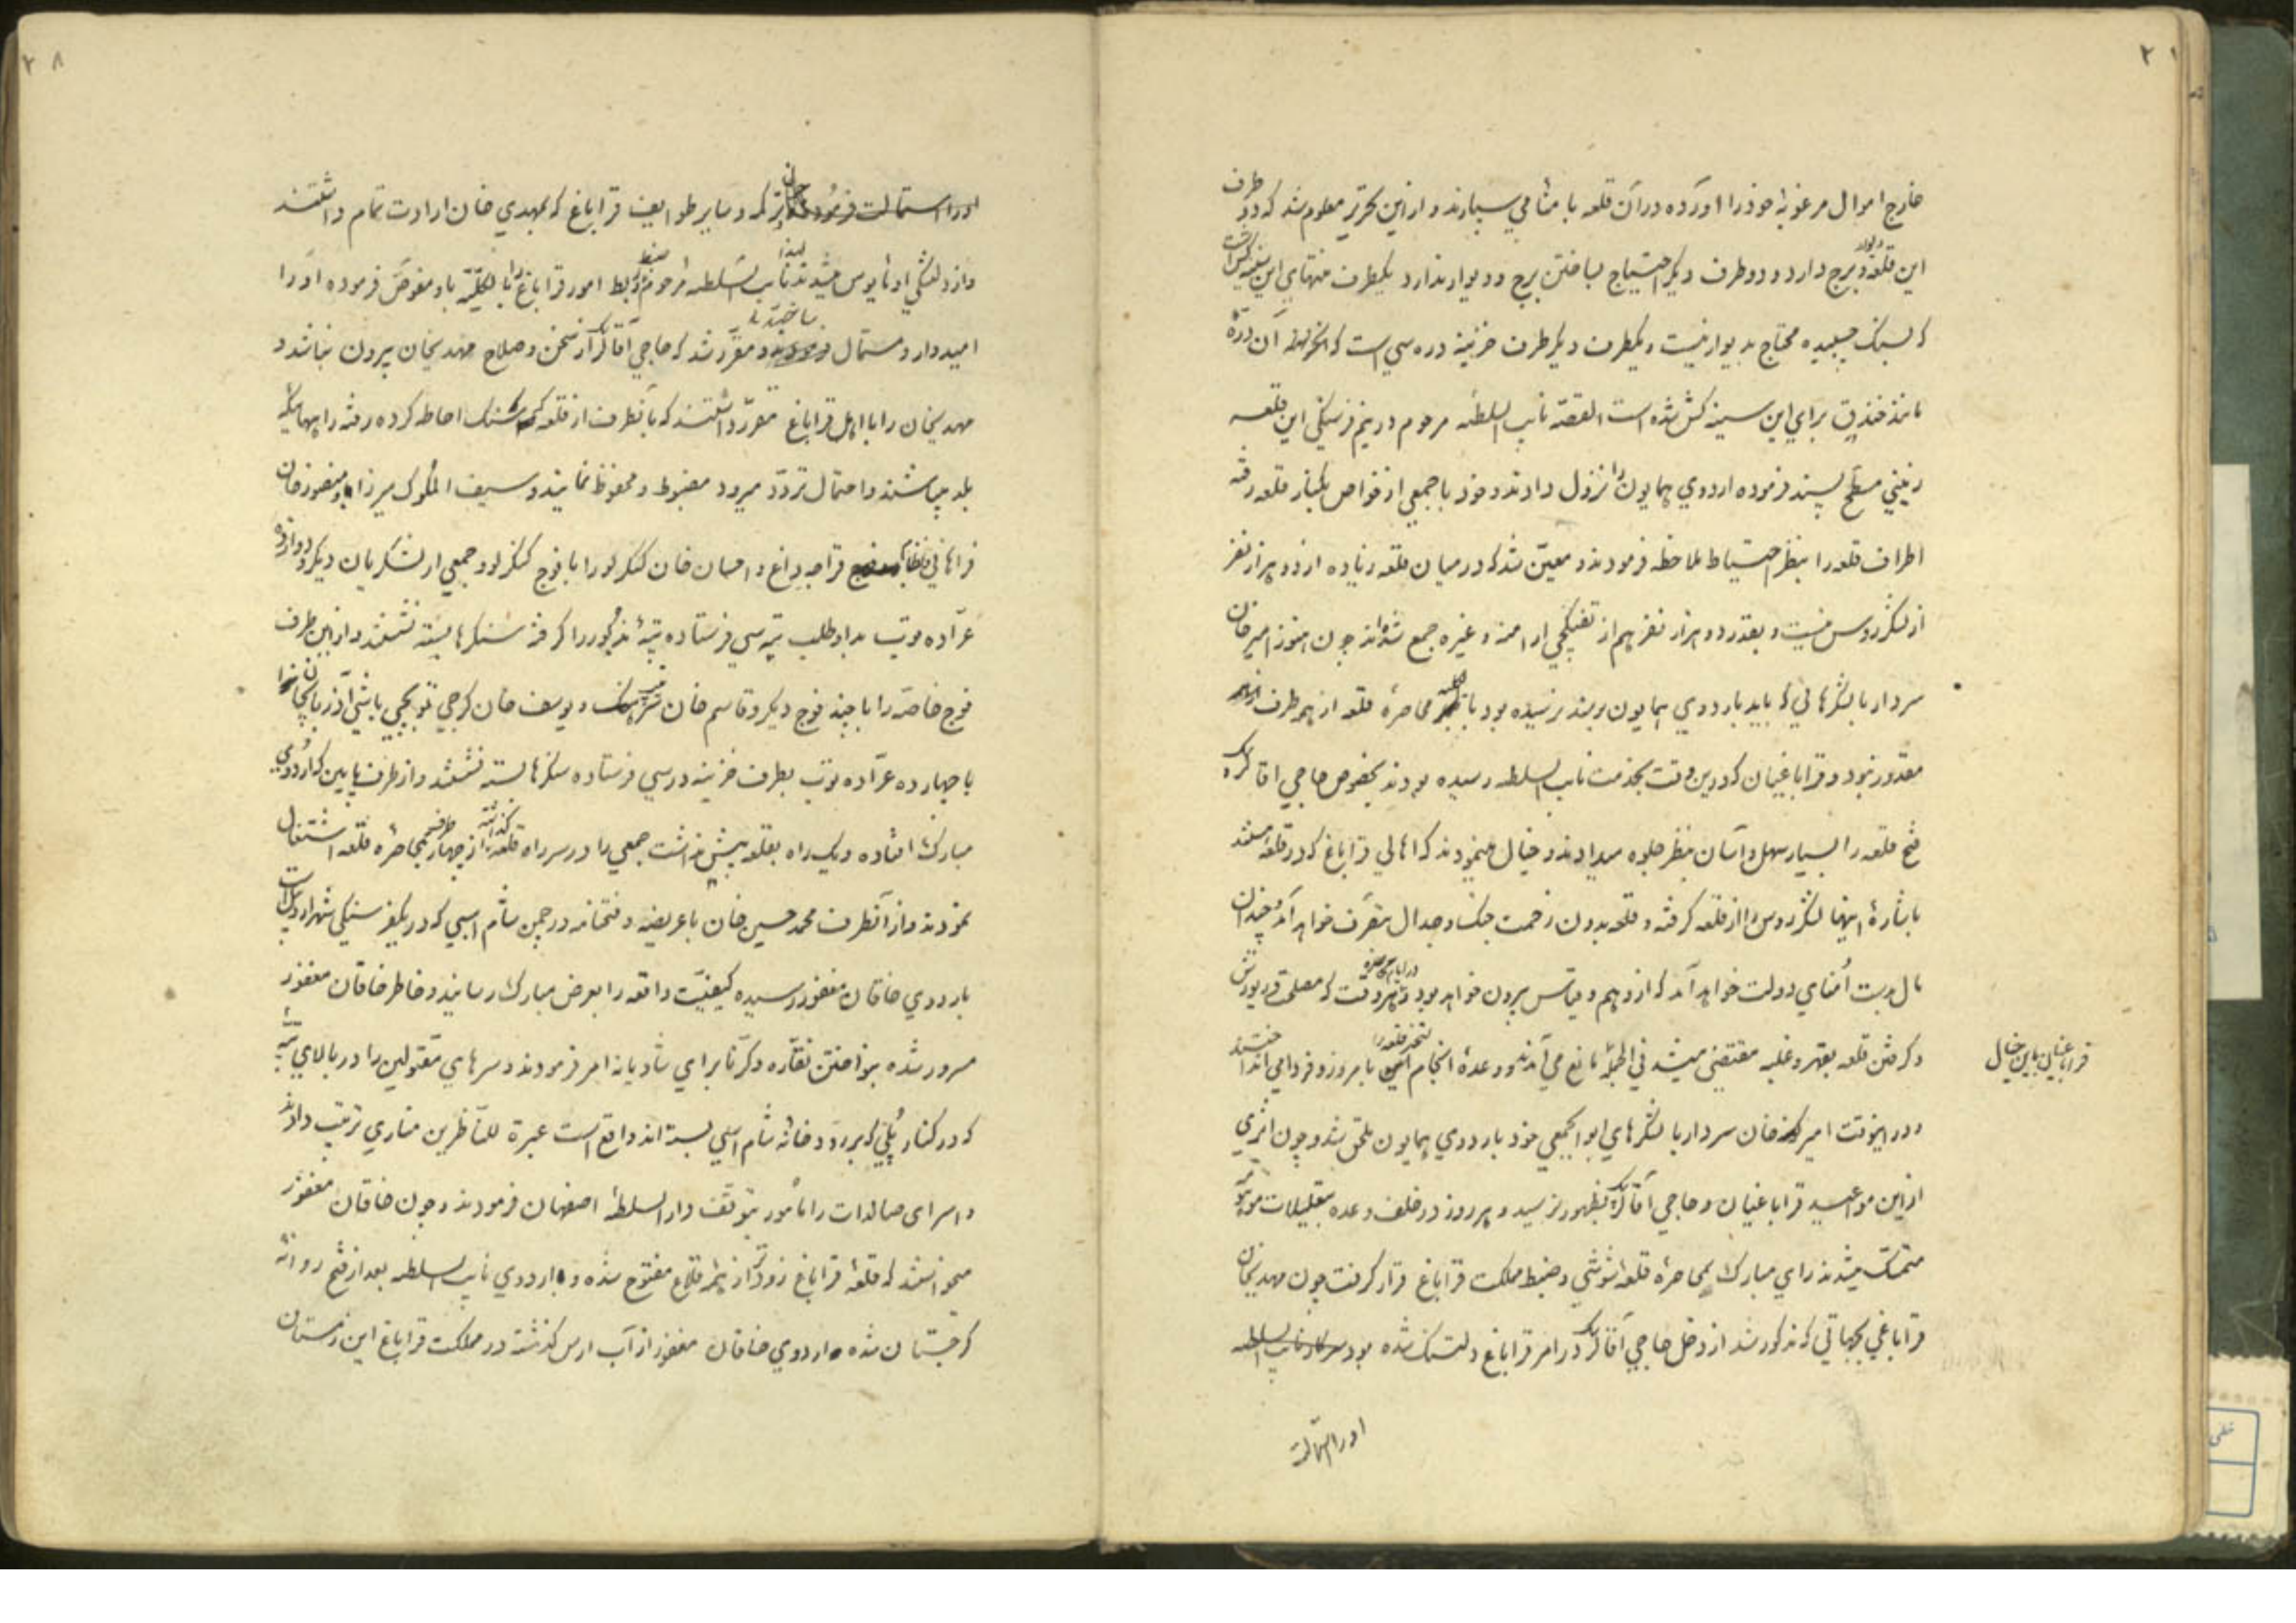 خارج اموال مرغوبهٔ خود را آورده در آن قلعه بامنا می سپارند و ازین تحریر معلوم شد که دو طرف
این قلعه دیوار و برج دارد و دو طرف دیگر احتیاج بساختن برج و دیوار ندارد یکطرف منتهای این
که بسنگ چسبیده محتاج بدیوار نیست و یکطرف دیگر طرف خزینه دره سی است که آن درهٔ
مانند خندق برای این کش شده است القصه نایب السلطنه مرحوم در نیم فرسنگی این قلعه
زمینی مسطح پسند فرموده اردوی همایون را نزول دادند و خود با جمعی از خواص بکنار قلعه رفته
اطراف قلعه را بنظر احتیاط ملاحظه فرمودند و معین شد که در میان قلعه زیاده از دو هزار نفر
از لشکر روس نیست و بقدر دو هزار نفر هم از تفنگچی ارامنه و غیره جمع شده‌اند چون هنوز امیرخان
سردار با لشکرهائی که باید باردوی همایون برسند نرسیده بود محاصرهٔ قلعه از هر طرف
مقدور نبود و قراباغیان که درین وقت بخدمت نایب السلطنه رسیده بودند بخصوص حاجی آقا لرک
فتح قلعه را بسیار سهل و آسان بنظر جلوه میدادند و خیال مینمودند که اهالی قراباغ که در قلعه هستند
باشارهٔ اینها لشکر روس را از قلعه گرفته و قلعه بدون زحمت جنگ و جدال بتصرف خواهد آمد و چندان
مال بدست امنای دولت خواهد آمد که از وهم و قیاس بیرون خواهد بود در ایام محاصره هر وقت که مصلحت در یورش
قراباغیان باین خیال
و گرفتن قلعه بقهر و غلبه مقتضی میشد فی الجمله مانع می آمدند و وعدهٔ انجام تسخیر قلعه را بامروز و فردا می انداختند
و در اینوقت امیر خان سردار با لشکرهای ابوابجمعی خود باردوی همایون ملحق شد و چون اثری
از این مواعید قراباغیان و حاجی آقا لرک بظهور نرسید و هر روز در خلف وعده بتعلیلات
متمسک میشدند رای مبارک بمحاصرهٔ قلعهٔ شوشی و ضبط مملکت قراباغ قرار گرفت چون مهدیخان
قراباغی بجهاتی که مذکور شد از دخل حاجی آقا لرک در امر قراباغ دلتنگ شده بود سرکار نایب السلطنه
اورا استمالت
اورا استمالت فرمودند و سایر طوایف قراباغ که بمهدی خان ارادت تمام داشتند
و از دلتنگی او مایوس میشدند لهذا نایب السلطنه مرحوم ضبط و ربط امور قراباغ را بالکلیه باو مفوض فرموده اورا
امیدوار و مستمال ساختند و مقرر شد که حاجی آقا لرک از سخن و صلاح مهدیخان بیرون نباشد و
مهدیخان را با اهل قراباغ مقرر داشتند که بآنطرف از قلعه که سنگ احاطه کرده رفته راههائیکه
بلد میباشند و احتمال تردد میرود مضبوط و محفوظ نمایند و سیف الملوک میرزا و منصورخان
فراهانی قراجه داغ و احسان خان کنگرلو را با فوج کنگرلو و جمعی از لشکریان دیگر و دوازده
عراده توپ بداوطلب تپه سی فرستاده تپهٔ مذکور را گرفته سنگرها بسته نشستند و ازین طرف
فوج خاصه را با چند فوج دیگر و قاسم خان و یوسف خان گرجی توپچی باشی آذربایجان را
با چهارده عراده توپ بطرف خزینه دره سی فرستاده سنگرها بسته نشستند و از طرف پایین که اردوی
مبارک افتاده و یک راه بقلعه بیش نداشت جمعی را در سر راه قلعه گذاشته از چهار طرف بمحاصرهٔ قلعه اشتغال
نمودند و از آنطرف محمد حسین خان با عریضه و فتحنامه در چمن شام اسبی که در یکفرسنگی شهر اردبیل است
باردوی خاقان مغفور رسیده کیفیت واقعه را بعرض مبارک رسانید و خاطر خاقان مغفور
مسرور شده بنواختن نقاره و کرنا برای شادیانه امر فرمودند و سرهای مقتولین را در بالای تپه
که در کنار پلی که بر رودخانهٔ شام اسبی بسته اند واقع است عبرة للناظرین مناری ترتیب دادند
و اسرای صالدات را مأمور بتوقف دارالسلطنهٔ اصفهان فرمودند و چون خاقان مغفور
میخواستند که قلعهٔ قراباغ زودتر از همه قلاع مفتوح شده و اردوی نایب السلطنه بعد از فتح روانهٔ
گرجستان شده و اردوی خاقان مغفور از آب ارس گذشته در مملکت قراباغ این زمستان